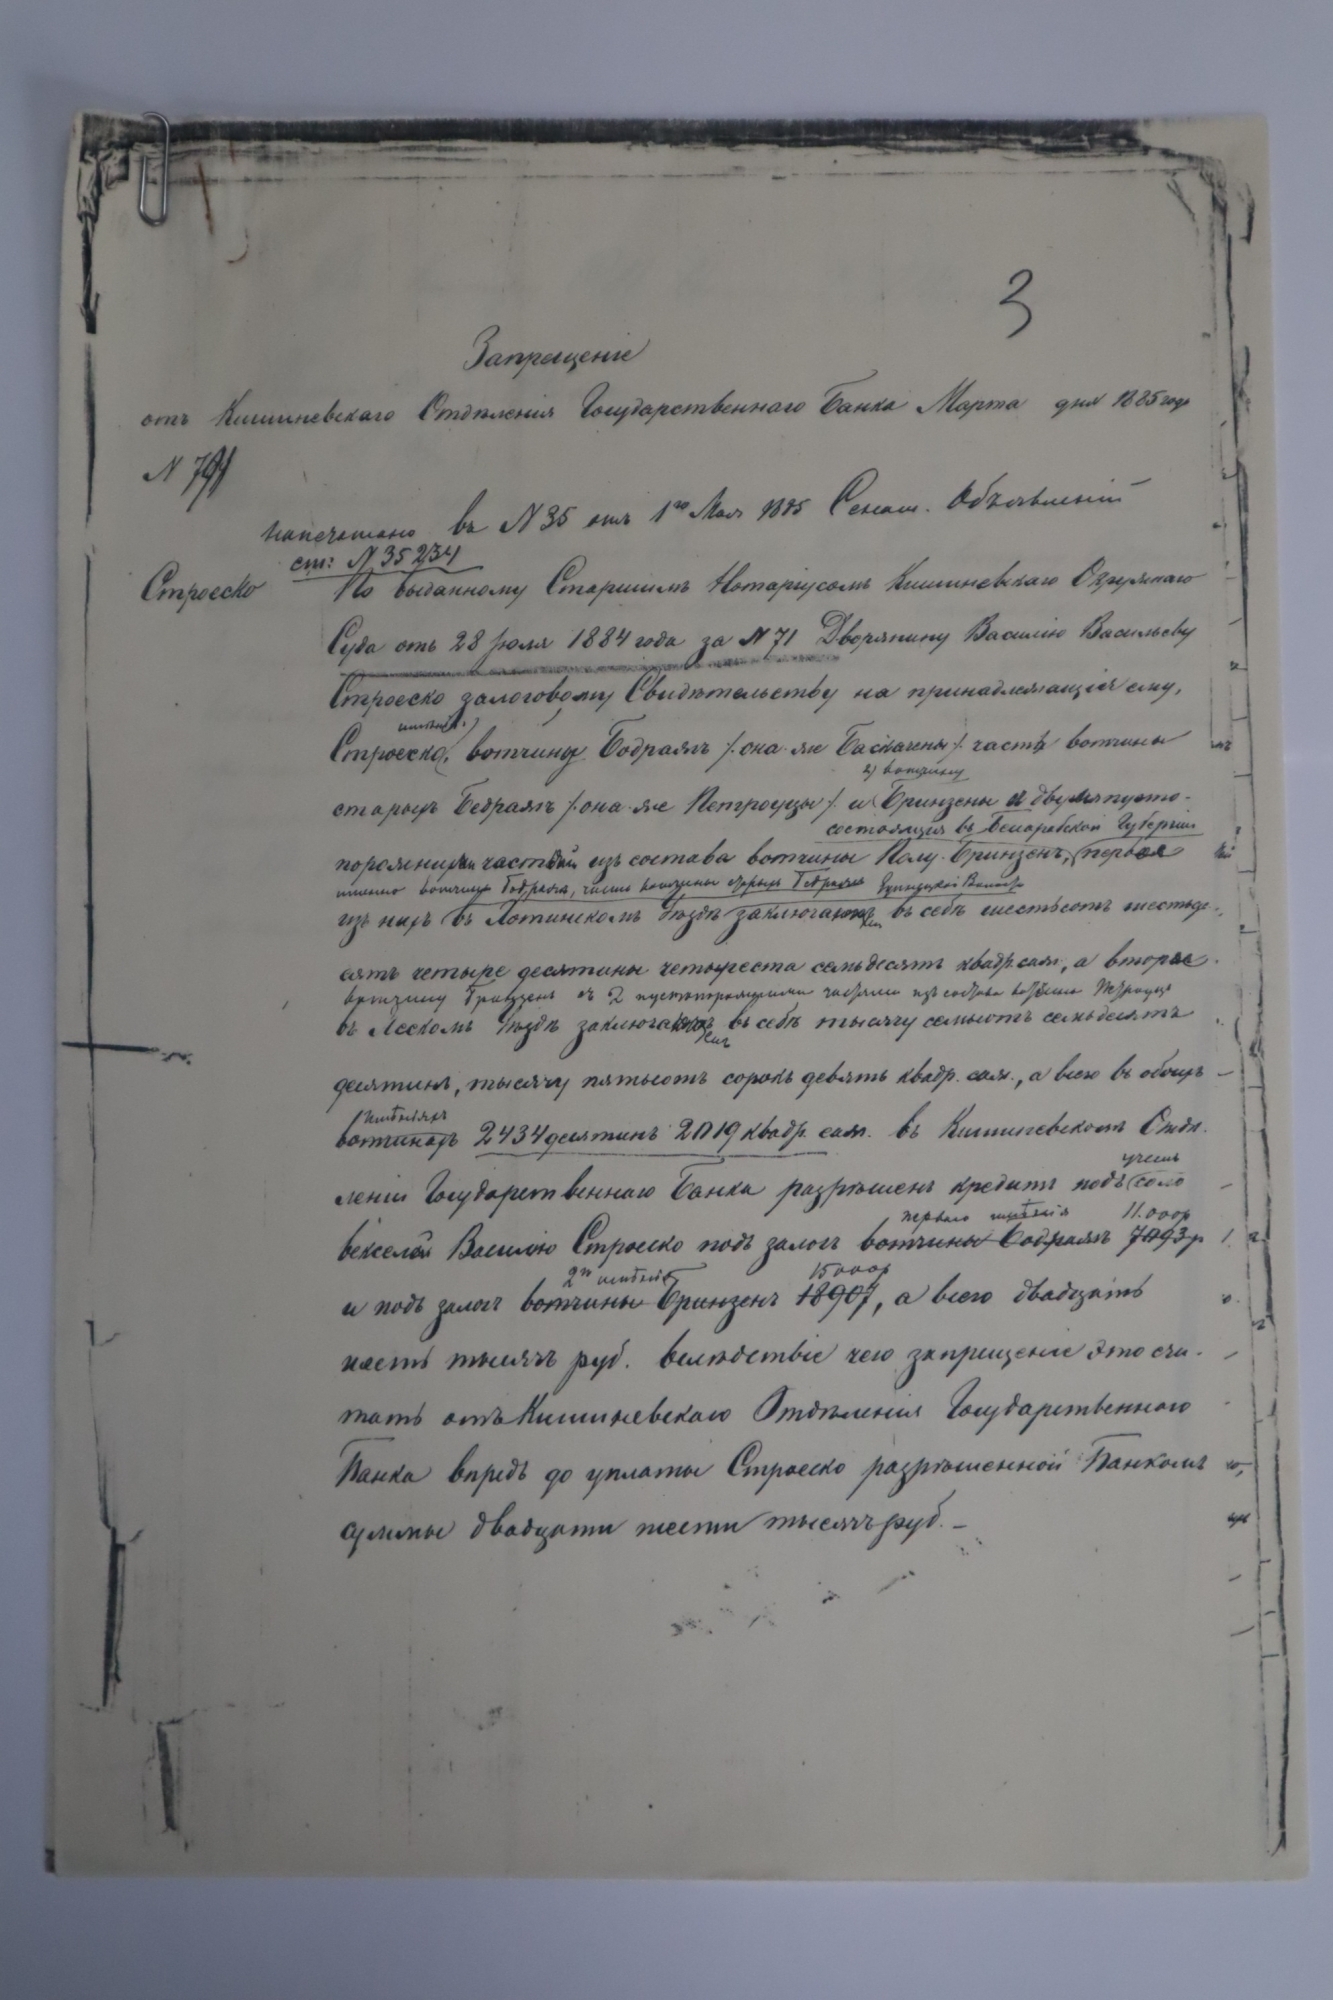 3
Запрещеніе
отъ Кишиневскаго Отдѣленія Государственнаго Банка Марта дня 1885 года
N 791
напечатано въ N 35 отъ 1го Мая 1885 Сенат. Объявленій
ст: N 35234
Строеско По выданному Старшимъ Нотаріусомъ Кишиневскаго Окружнаго
Суда отъ 28 Іюля 1884 года за N 71 Дворянину Василію Васильеву
Строеско залоговому Свидѣтельству на принадлежащія ему,
Строеско, вотчины Бодражъ /: она же Баскачены :/ часть вотчины
2) вотчину
старыхъ Бедражъ /: она же Петроуцы :/ и Бринзены и двумя пусто-
состоящія въ Бессарабской Губерніи
порожними частями изъ состава вотчины Полу-Бринзенъ, первая
именно вотчину Бодражъ, часть вотчины старыхъ Бедражъ
изъ нихъ въ Хотинскомъ Уѣздѣ заключаю въ себѣ шестьсотъ шестьде-
сятъ четыре десятины четыреста семьдесятъ квадр. саж., а вторая
вотчину Бринзенъ съ 2 пустопорожними частями изъ состава вотчины
въ Ясскомъ Уѣздѣ заключаю въ себѣ тысячу семьсотъ семьдесятъ
десятинъ, тысячу пятьсотъ сорокъ девять квадр. саж., а всего въ обоихъ
имѣніяхъ
вотчинахъ 2434 десятинъ 2019 квадр. саж. въ Кишиневскомъ Отдѣ-
леніи Государственнаго Банка разрѣшенъ кредитъ подъ соло
перваго имѣнія 11.000р
векселя Василію Строеско подъ залогъ вотчины Бодражъ 7093р
2го имѣнія 15000р
и подъ залогъ вотчины Бринзенъ 18907, а всего двадцать
шесть тысячъ руб. вслѣдствіе чего запрещеніе это счи-
тать отъ Кишиневскаго Отдѣленія Государственнаго
Банка впредь до уплаты Строеско разрѣшенной Банкомъ
суммы двадцати шести тысячъ руб. –